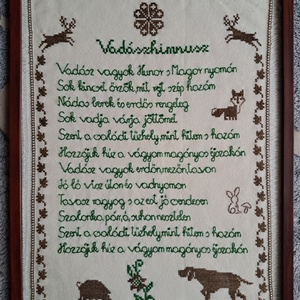 Vadászhimnusz
Vadász vagyok Hunor s Magor nyomán
Sok kincset őrzök, mit rejt szép hazám
Nádas berek és erdős rengeteg
Sok vadja várja jöttömet
Szent a családi tűzhely, mint hitem s hazám
Hozzájuk húz a vágyam magányos éjszakán
Vadász vagyok erdőn, mezőn, tavon
Jó ló visz úton és vadnyomon
Tavasz ragyog s az est jó csendesen
Szalonka pár, a, suhan nesztelen
Szent a családi tűzhely, mint hitem s hazám
Hozzájuk húz a vágyam magányos éjszakán